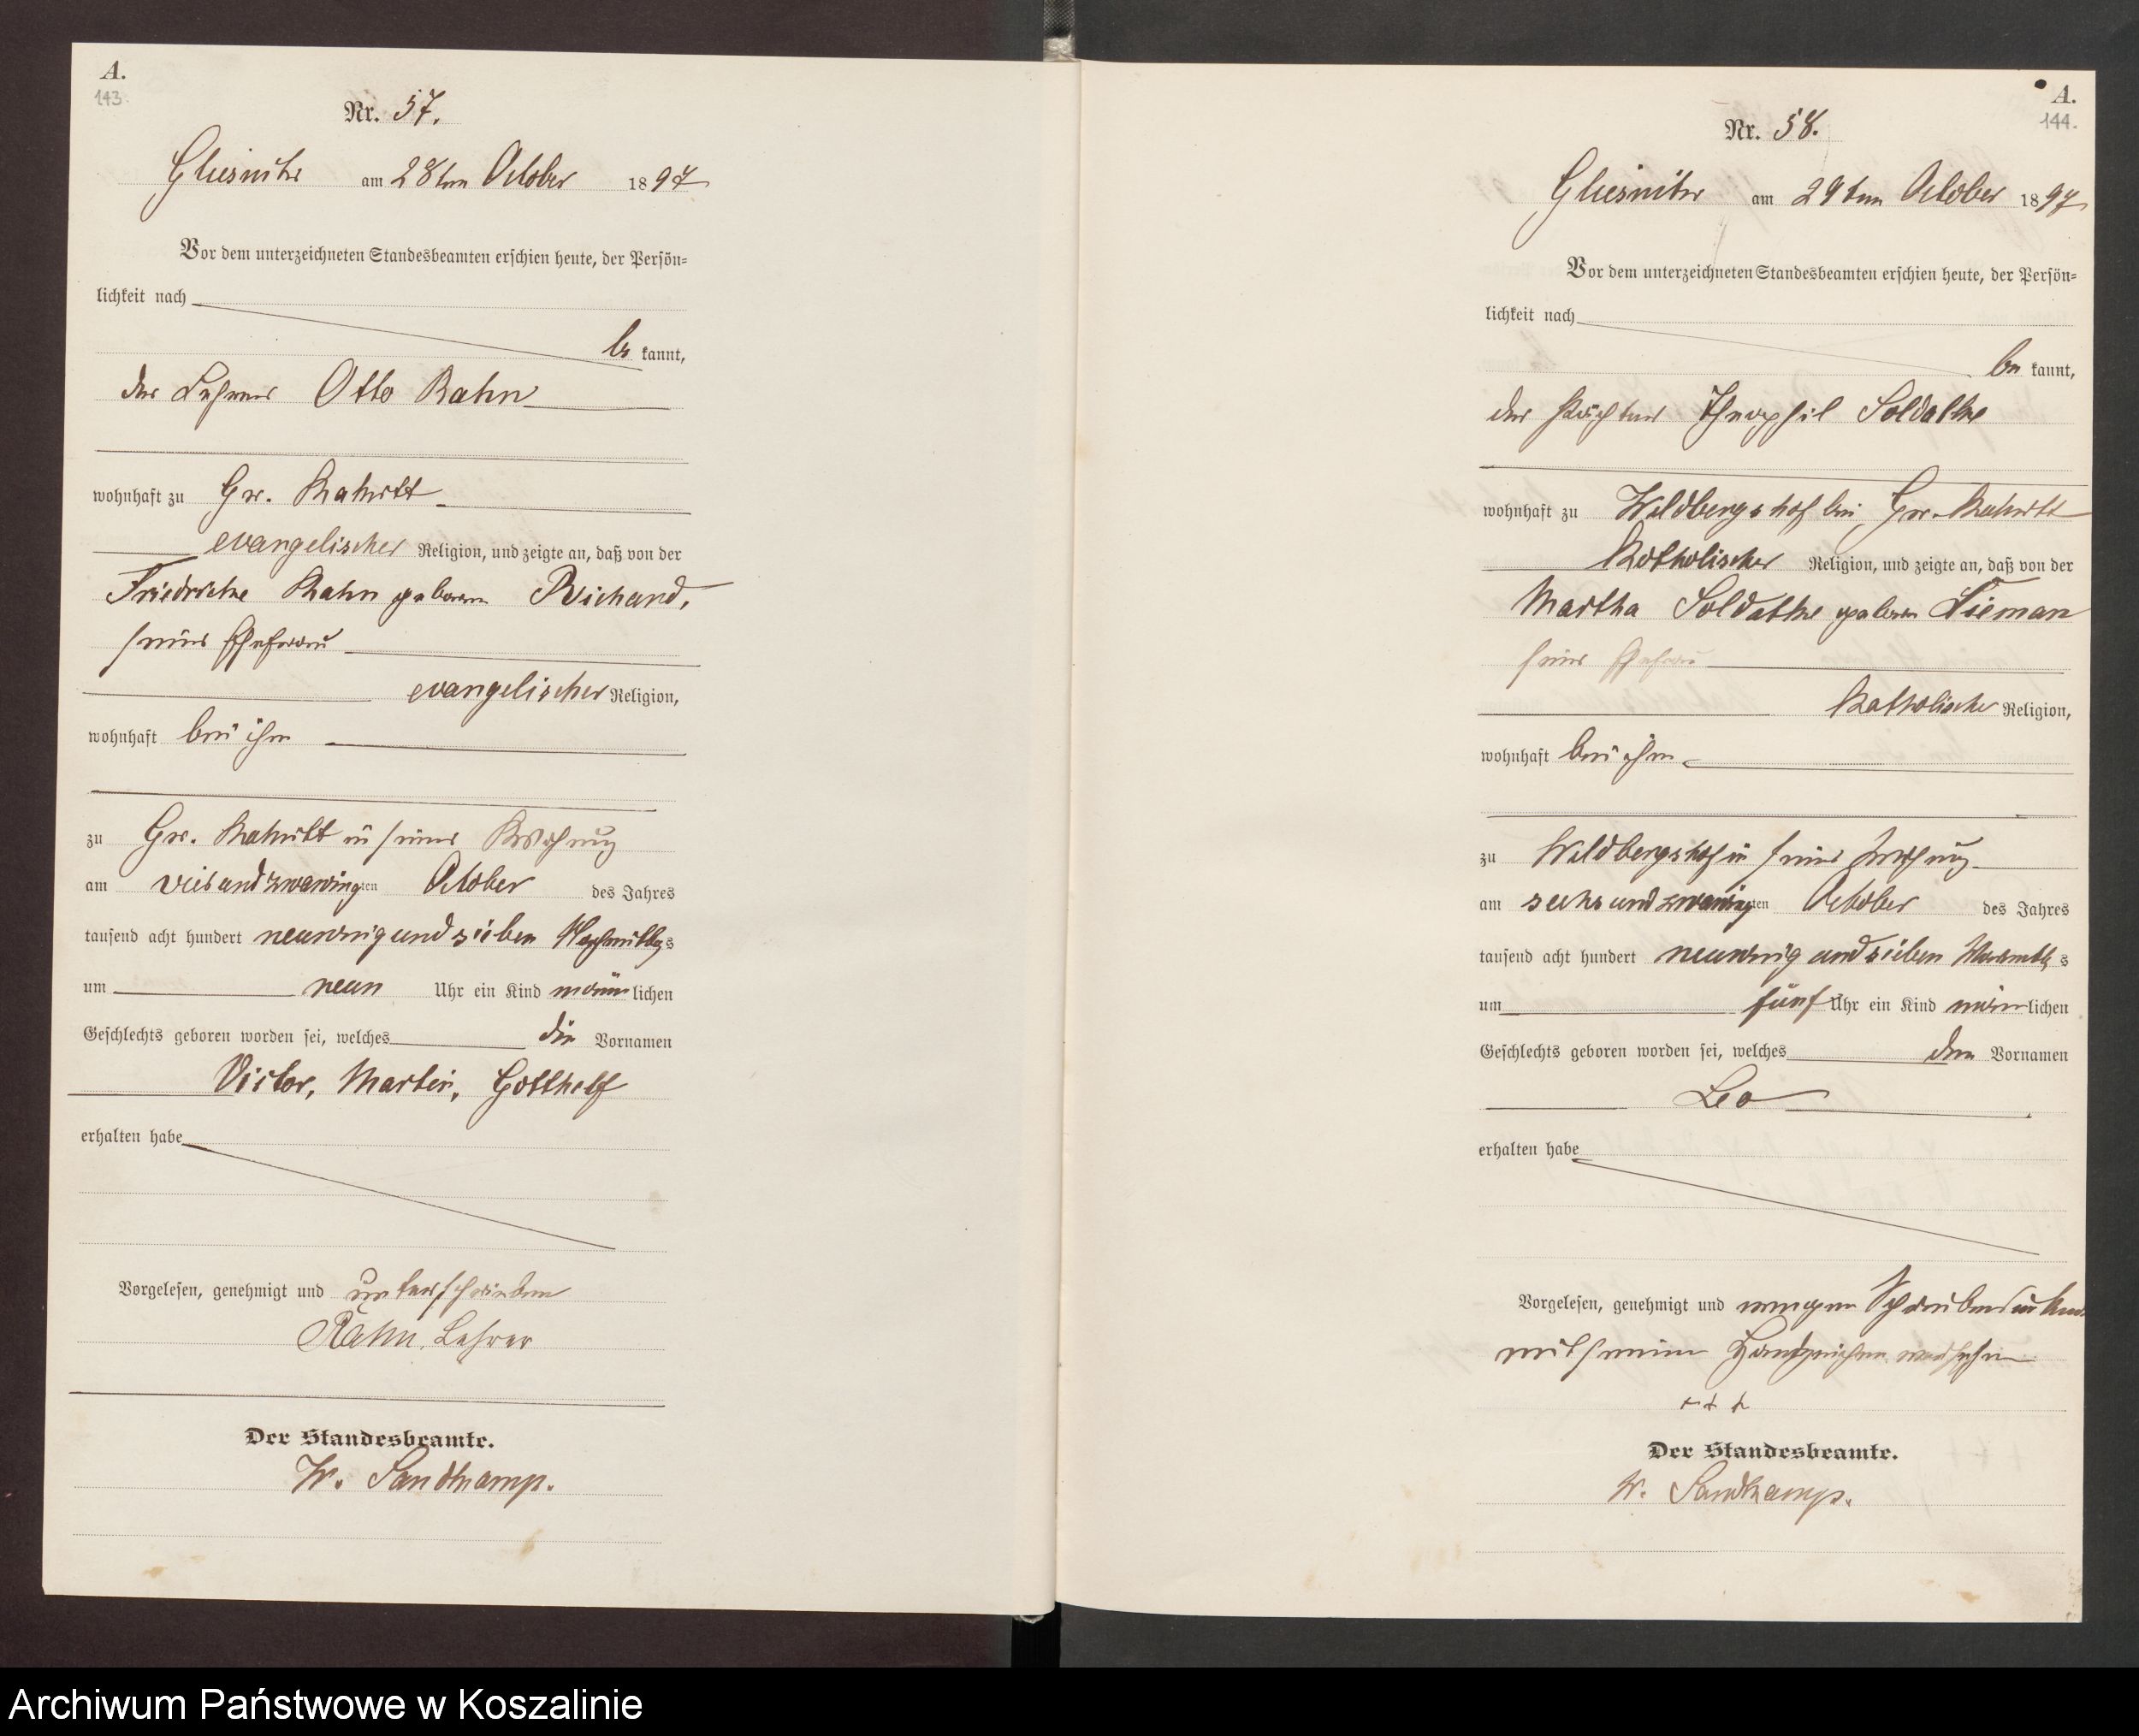 A.
143.
Nr. 57.
Gliesnitz am 28ten October 1897
Vor dem unterzeichneten Standesbeamten erschien heute, der Persön-
lichkeit nach
be kannt,
der Lehrer Otto Rahn
wohnhaft zu Gr. Rakitt
evangelischer Religion, und zeigte an, daß von der
Friedricke Rahn geborene
seiner Ehefrau
evangelischer Religion,
wohnhaft bei ihm
zu Gr. Rakitt in seiner Wohnung
am October des Jahres
tausend acht hundert neunzig und sieben Nachmittags
um neun Uhr ein Kind männlichen
Geschlechts geboren worden sei, welches die Vornamen
Victor, Martin, Gotthelf
erhalten habe
Vorgelesen, genehmigt und unterschrieben
Rahn, Lehrer
Der Standesbeamte.
W. Sandkamp.
A.
144.
Nr. 58.
Gliesnitz am 29ten October 1897
Vor dem unterzeichneten Standesbeamten erschien heute, der Persön-
lichkeit nach
be kannt,
der Pächter Theophil Soldatke
wohnhaft zu Wildbergshof bei Gr. Rakitt
Katholischer Religion, und zeigte an, daß von der
Martha Soldatke geboren
seiner Ehefrau
Katholischer Religion,
wohnhaft bei ihm
zu Wildbergshof in seiner Wohnung
am sechsundzwanzigten October des Jahres
tausend acht hundert neunzig und sieben Vormittags
um fünf Uhr ein Kind männlichen
Geschlechts geboren worden sei, welches den Vornamen
Leo
erhalten habe
Vorgelesen, genehmigt und wegen
mit seinem Handzeichen versehen
+ + +
Der Standesbeamte.
W. Sandkamp.
Archiwum Państwowe w Koszalinie